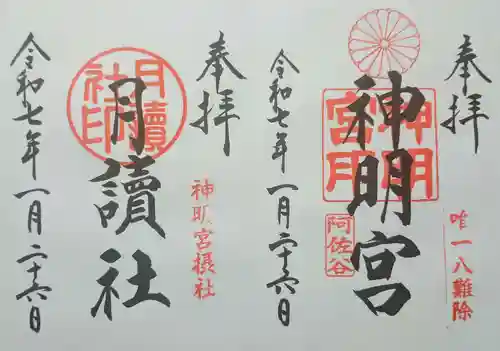 奉拝
唯一八難除
神明宮
神明宮印
阿佐谷
令和七年一月二十六日
奉拝
神明宮摂社
月讀社
月讀社印
令和七年一月二十六日